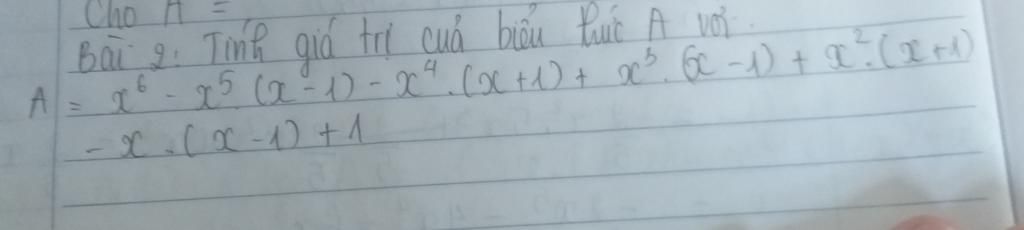 Cho A =
Bài 2: Tính giá trị cuả biểu thức A với
A = x⁶ - x⁵ (x - 1) - x⁴ . (x + 1) + x³ . (x - 1) + x² . (x + 1)
- x . (x - 1) + 1